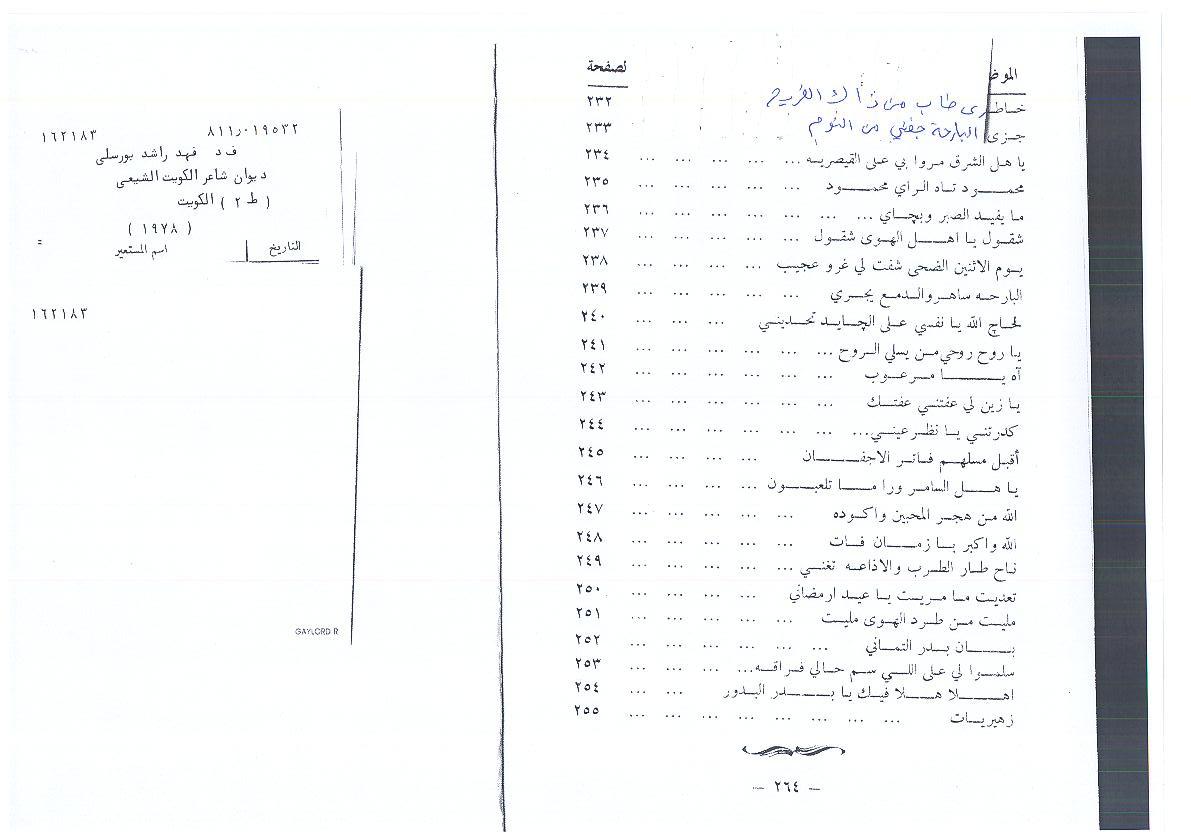 الموض	لصفحة
خاطري طاب من ذاك الفريح	٢٣٢
جزى البارحة جفني من النوم	٢٣٣
يا هل الشرق مروا بي على القيصريه ... ... ... ... ...	٢٣٤
محمــود تاه الراي محمــود ... ... ... ... ...	٢٣٥
ما يفيد الصبر وبچاي ... ... ... ... ... ... ...	٢٣٦
شقول يا اهل الهوى شقول ... ... ... ... ...	٢٣٧
يوم الاثنين الضحى شفت لي غرو عجيب ... ... ... ...	٢٣٨
البارحه ساهر والدمع يجري ... ... ... ... ...	٢٣٩
لحاچ الله يا نفسي على الچايد تحديني ... ... ...	٢٤٠
يا روح روحي من يسلي الروح ... ... ... ... ... ...	٢٤١
آه يــا مرعوب ... ... ... ... ... ...	٢٤٢
يا زين لي عفتني عفتك ... ... ... ... ... ...	٢٤٣
كدرتني يا نظر عيني... ... ... ... ... ... ...	٢٤٤
أقبل مسلهم فاتر الاجفــان ... ... ... ...	٢٤٥
يا هــل السامر ورا مــا تلعبــون ... ... ... ...	٢٤٦
الله من هجر المحبين واكوده ... ... ... ... ...	٢٤٧
الله واكبر يا زمــان فات ... ... ... ... ...	٢٤٨
ناح طار الطرب والاذاعه تغني ... ... ... ... ...	٢٤٩
تعديت ما مريت يا عيد ارمضاني ... ... ... ...	٢٥٠
مليت من طرد الهوى مليت ... ... ... ... ...	٢٥١
بــان بدر التماني ... ... ... ... ... ...	٢٥٢
سلموا لي على اللي سم حالي فراقه... ... ... ...	٢٥٣
اهــلا هــلا فيك يا بــدر البدور ... ...	٢٥٤
زهيريات ... ... ... ... ... ... ... ...	٢٥٥
— ٢٦٤ —
٨١١٫٠١٩٥٣٢	١٦٢١٨٣
ف د فهد راشد بورسلي
ديوان شاعر الكويت الشيعى
( ط ٢ ) الكويت
( ١٩٧٨ )
التاريخ	اسم المستعير
١٦٢١٨٣
GAYLORD R